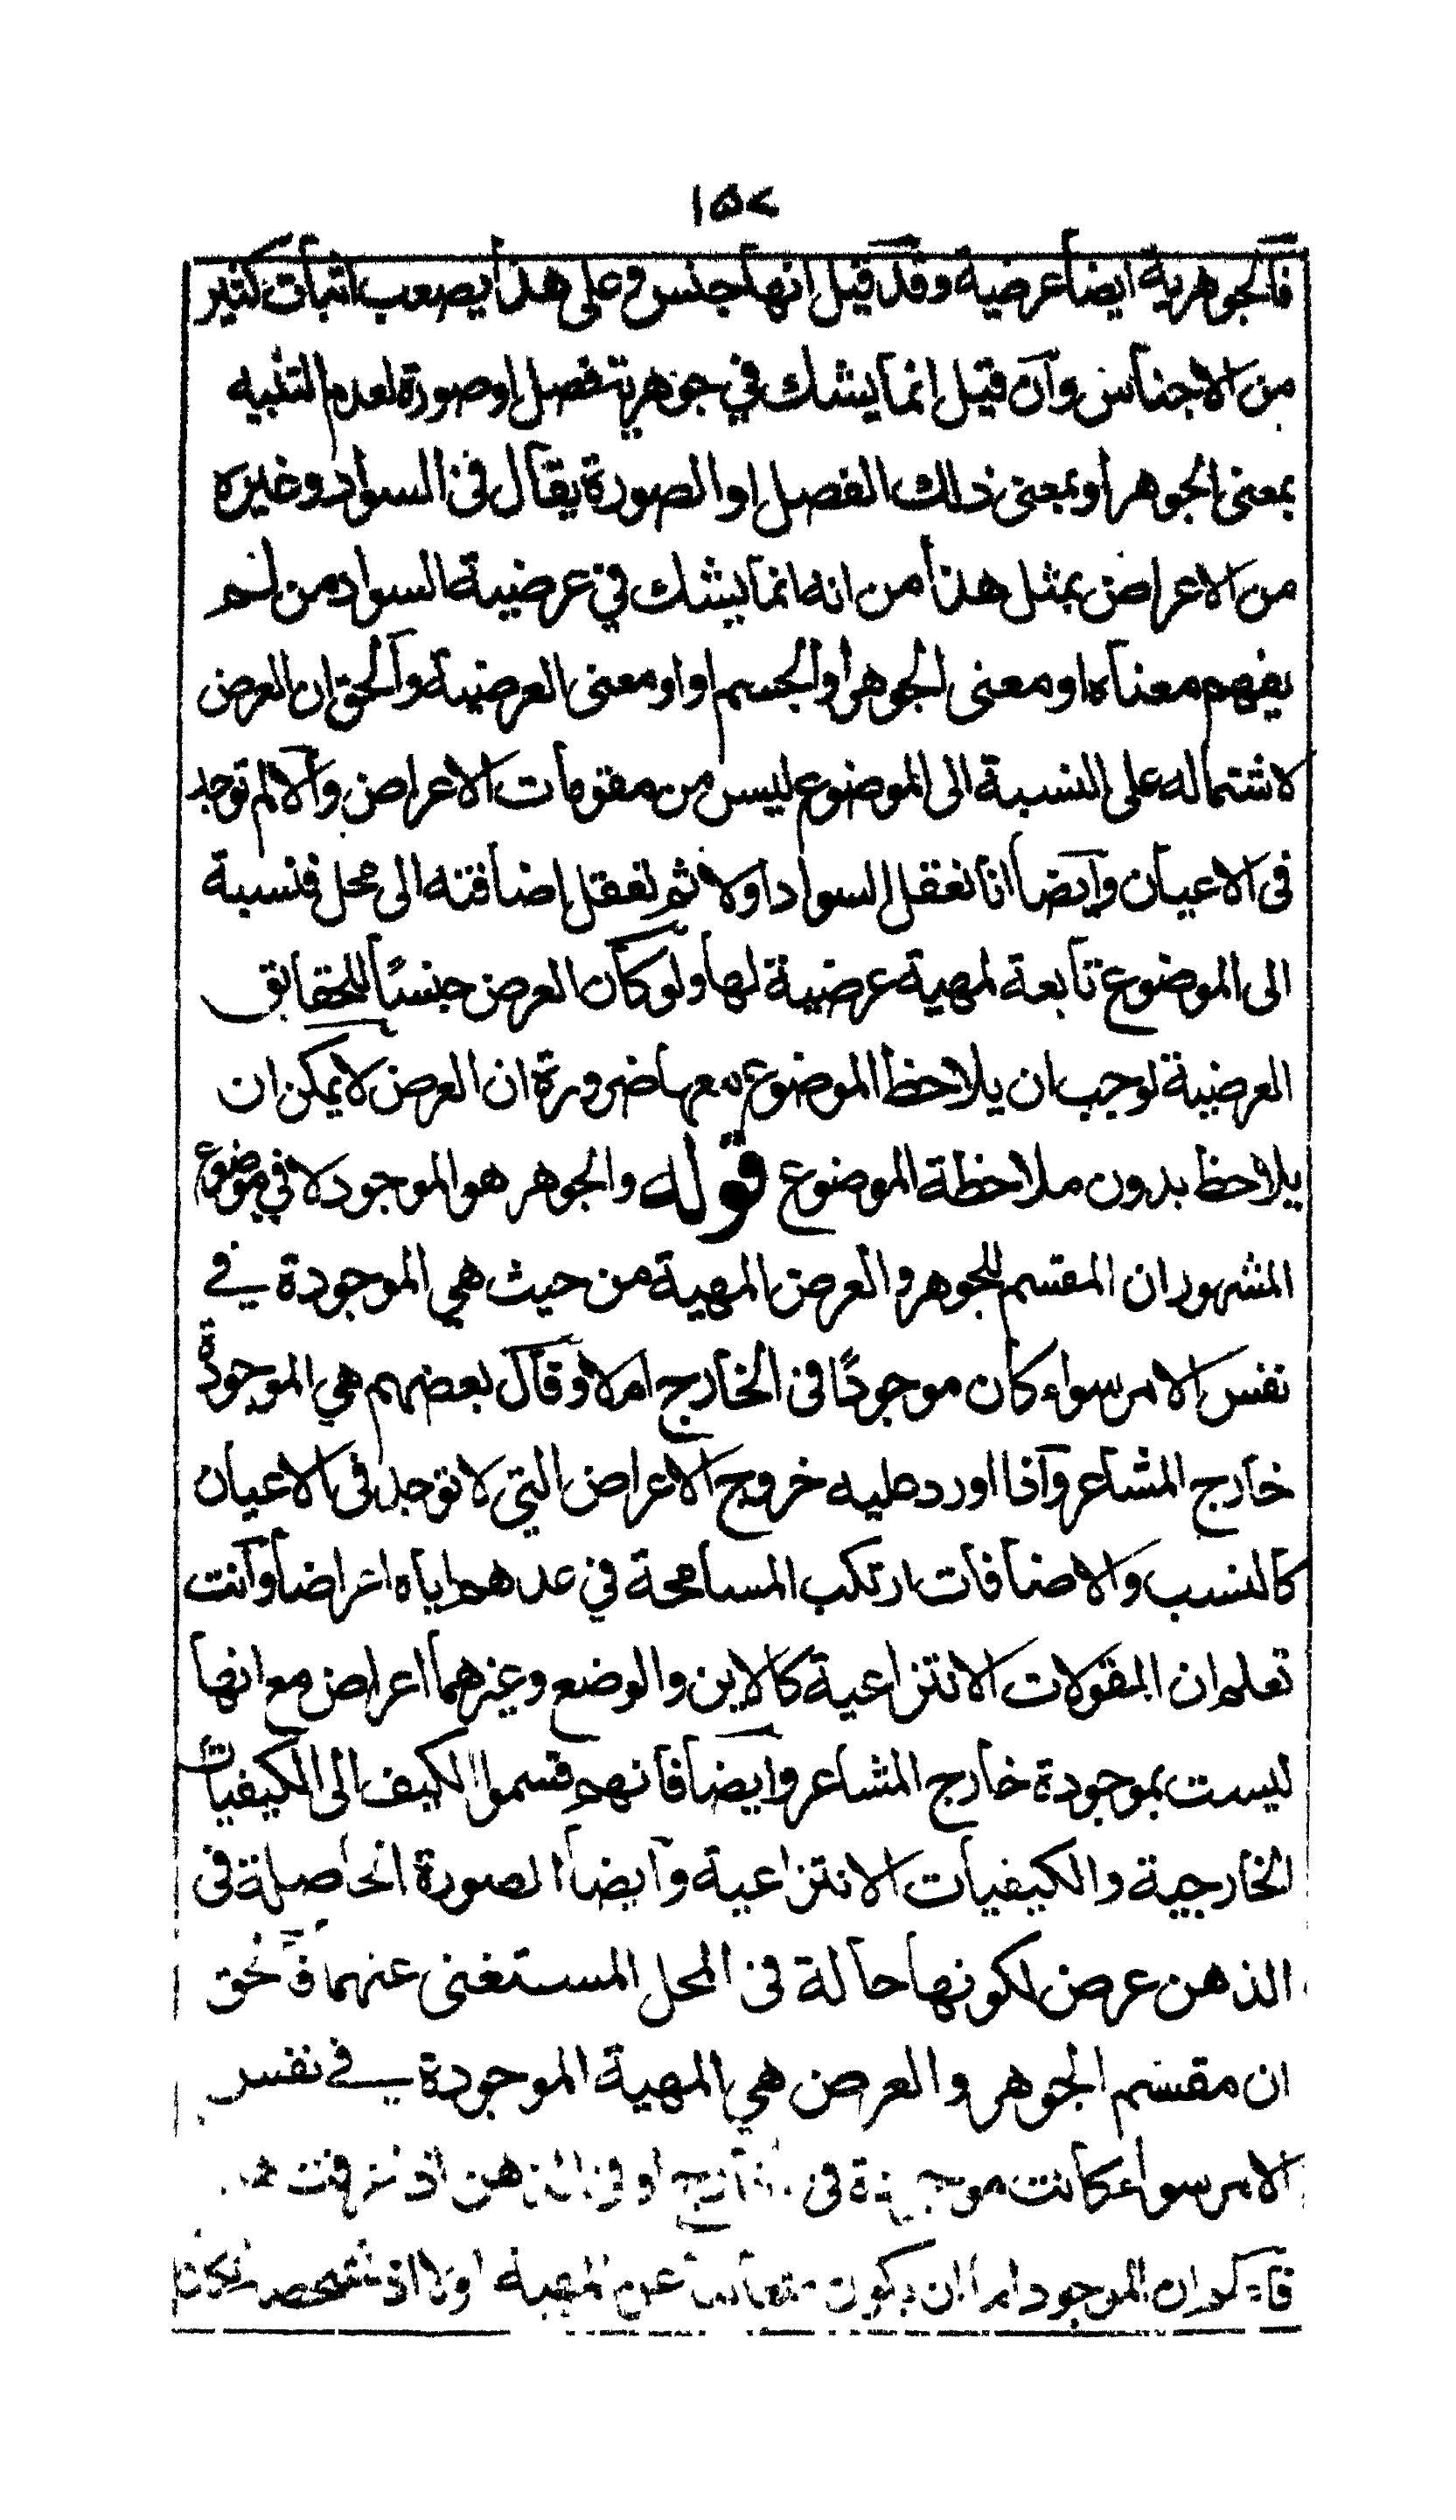 ١٥٧
فالجوهرية ايضا عرضية وقد قيل انها جنس وعلى هذا يصعب اثبات كثير
من الاجناس وان قيل انما يشك في جوهرية فصل او صورة لعدم التنبيه
بمعنى الجوهر او بمعنى ذلك الفصل او الصورة يقال في السواد وغيره
من الاعراض بمثل هذا من انه انما يشك في عرضية السواد من لم
يفهم معناه او معنى الجوهر او الجسم او او معنى العرضية والحق ان العرض
لاشتماله على النسبة الى الموضوع ليس من مقومات الاعراض والا لم توجد
في الاعيان وايضا انا نعقل السواد اولا ثم نعقل اضافته الى محل فنسبة
الى الموضوع تابعة لمهية عرضية لها ولو كان العرض جنسًا للحقايق
العرضية لوجب ان يلاحظ الموضوع معها ضرورة ان العرض لا يمكن ان
يلاحظ بدون ملاحظة الموضوع قوله والجوهر هو الموجود لا في موضوع
المشهور ان المقسم للجوهر والعرض المهية من حيث هي الموجودة في
نفس الامر سواء كان موجودًا في الخارج ام لا وقال بعضهم هي الموجودة
خارج المشاعر واذا اورد عليه خروج الاعراض التي لا توجد في الاعيان
كالنسب والاضافات ارتكب المسامحة في عدهم اياه اعراضا وانت
تعلم ان المقولات الانتزاعية كالاين والوضع وغيرهما اعراض مع انها
ليست بموجودة خارج المشاعر وايضا فانهم قسموا الكيف الى الكيفيات
الخارجية والكيفيات الانتزاعية وايضا الصورة الحاصلة في
الذهن عرض لكونها حالة في المحل المستغنى عنهما فالحق
ان مقسم الجوهر والعرض هي المهية الموجودة في نفس
الامر سواء كانت موجودة في الخارج او في الذهن اذ عرفت
ان الموجود اما ان يكون عن المهية اولا